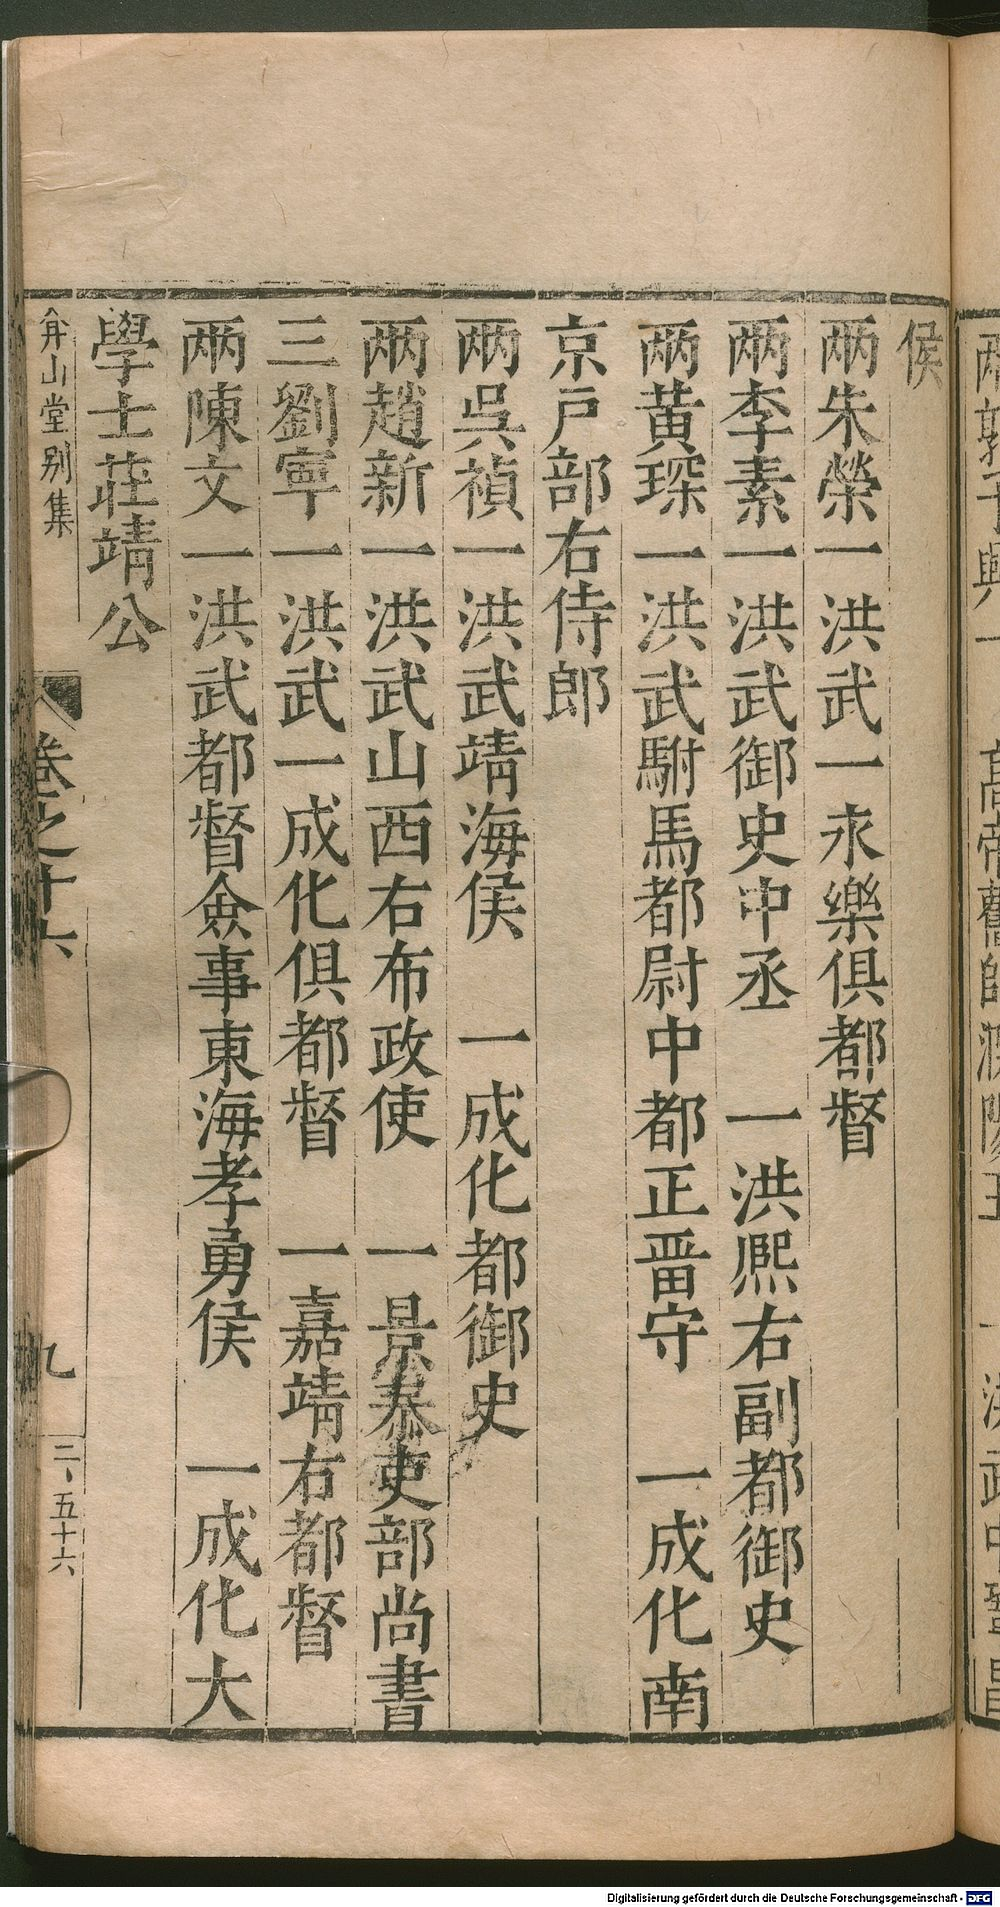 侯
兩朱榮一洪武一永樂俱都督
兩李素一洪武御史中丞　一洪熙右副都御史
兩黃琛一洪武駙馬都尉中都正畱守　一成化南
京戶部右侍郎
兩吳禎一洪武靖海侯　一成化都御史
兩趙新一洪武山西右布政使　一景泰吏部尚書
三劉寧一洪武一成化俱都督　一嘉靖右都督
兩陳文一洪武都督僉事東海孝勇侯　一成化大
學士莊靖公
弇山堂別集
卷之十六
九
二、五十六
Digitalisierung gefördert durch die Deutsche Forschungsgemeinschaft - DFG